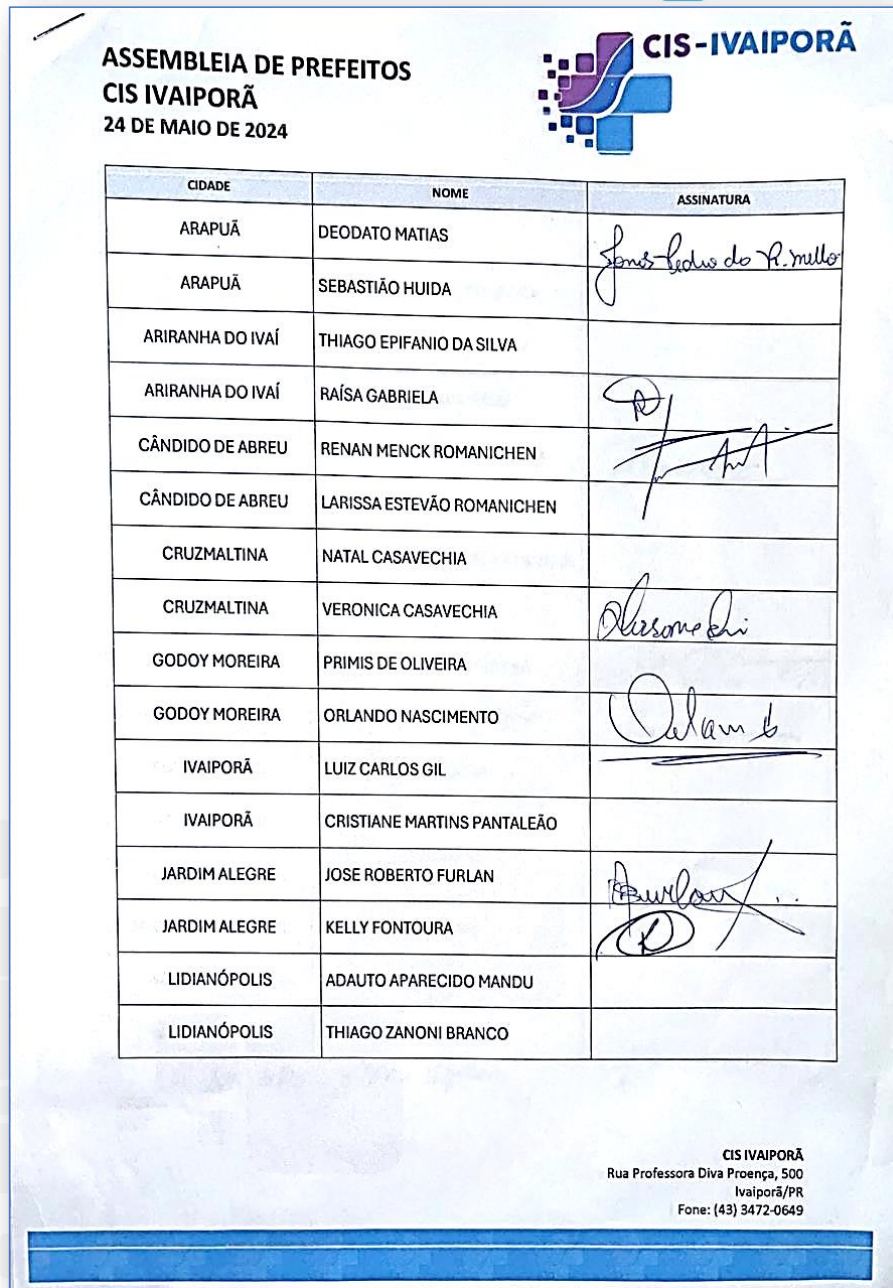 ASSEMBLEIA DE PREFEITOS
CIS IVAIPORÃ
24 DE MAIO DE 2024
CIS-IVAIPORÃ
CIDADE NOME ASSINATURA
ARAPUÃ DEODATO MATIAS
Pedro do R. mello
ARAPUÃ SEBASTIÃO HUIDA
ARIRANHA DO IVAÍ THIAGO EPIFANIO DA SILVA
ARIRANHA DO IVAÍ RAÍSA GABRIELA
CÂNDIDO DE ABREU RENAN MENCK ROMANICHEN
CÂNDIDO DE ABREU LARISSA ESTEVÃO ROMANICHEN
CRUZMALTINA NATAL CASAVECHIA
CRUZMALTINA VERONICA CASAVECHIA
GODOY MOREIRA PRIMIS DE OLIVEIRA
GODOY MOREIRA ORLANDO NASCIMENTO
IVAIPORÃ LUIZ CARLOS GIL
IVAIPORÃ CRISTIANE MARTINS PANTALEÃO
JARDIM ALEGRE JOSE ROBERTO FURLAN
JARDIM ALEGRE KELLY FONTOURA
LIDIANÓPOLIS ADAUTO APARECIDO MANDU
LIDIANÓPOLIS THIAGO ZANONI BRANCO
CIS IVAIPORÃ
Rua Professora Diva Proença, 500
Ivaiporã/PR
Fone: (43) 3472-0649